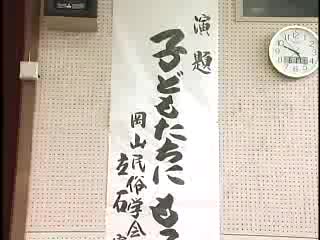 演題
子どもたちに も
岡山民俗学会
立石